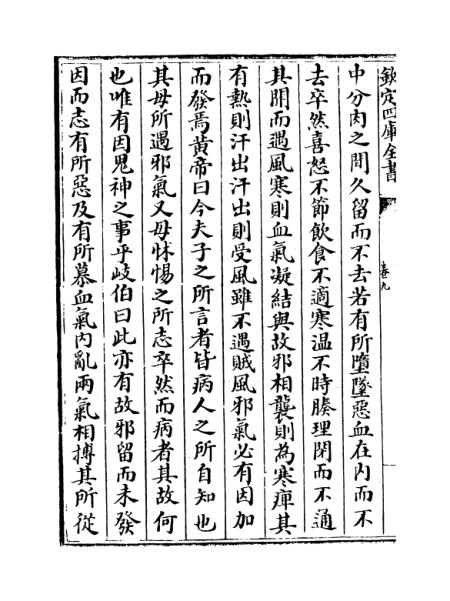 欽定四庫全書
卷九
中分肉之間久留而不去若有所墮墜惡血在內而不
去卒然喜怒不節飲食不適寒温不時腠理閉而不通
其開而遇風寒則血氣凝結與故邪相襲則為寒痺其
有熱則汗出汗出則受風雖不遇賊風邪氣必有因加
而發焉黃帝曰今夫子之所言者皆病人之所自知也
其毋所遇邪氣又毋怵惕之所志卒然而病者其故何
也唯有因鬼神之事乎岐伯曰此亦有故邪留而未發
因而志有所惡及有所慕血氣內亂兩氣相搏其所從